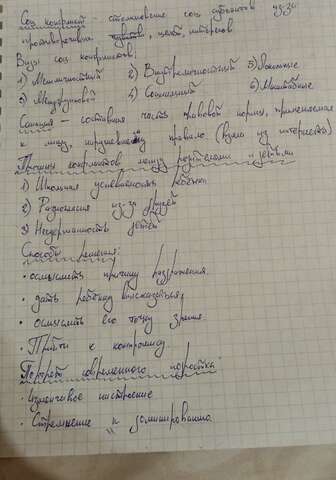 Соц конфликт - столкновение соц субъектов из-за
противоречия чувств, целей, интересов
Виды соц конфликтов:
1) Межличностный 2) Внутриличностный 5) Локальные
3) Межгрупповой 4) Социальный 6) Масштабные
Санкция - составная часть правовой нормы, применяемая
к лицу, нарушившему правило (взято из интернета)
Причины конфликтов между родителями и детьми
1) Школьная успеваемость ребёнка
2) Разногласия из-за друзей
3) Несдержанность детей
Способы решения:
· осмыслить причину раздражения.
· дать ребёнку высказаться,
· осмыслить его точку зрения.
· Прийти к компромиссу.
Портрет современного подростка:
· Изменчивое настроение
· Стремление к доминированию